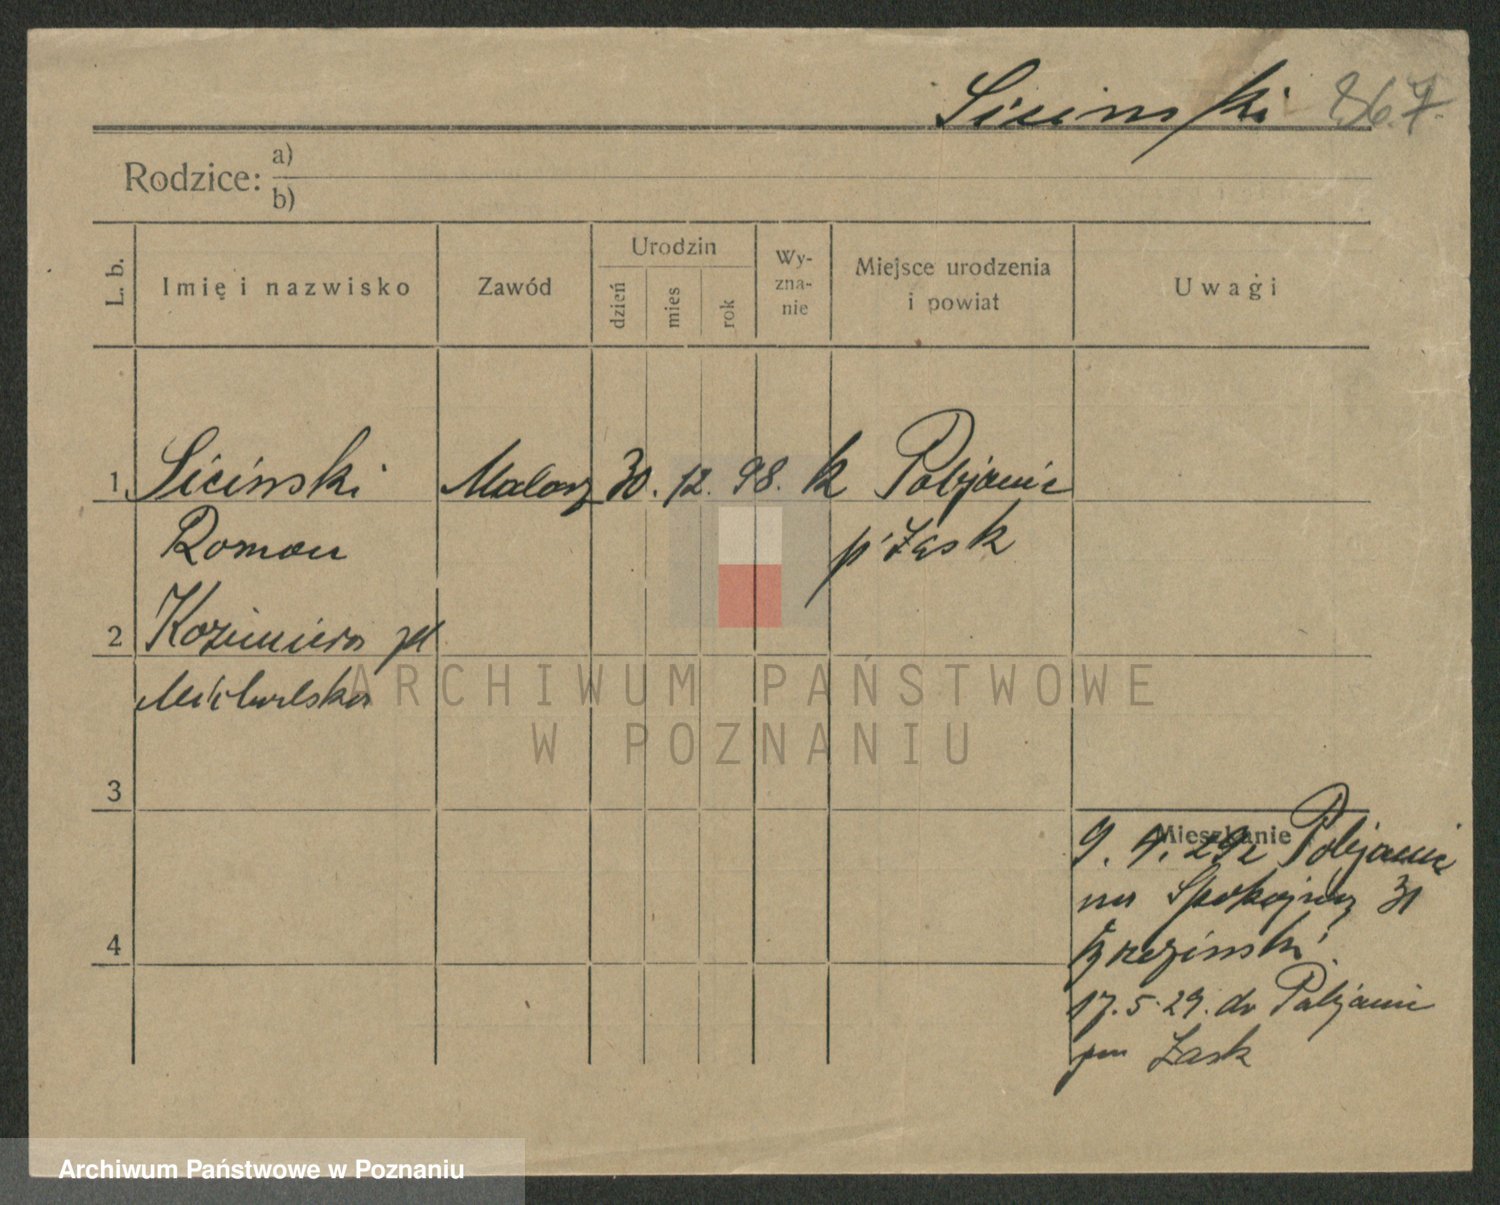 Siciński 867.
Rodzice: a)
b)
L. b.
Imię i nazwisko
Zawód
Urodzin
dzień
mies
rok
Wy-
zna-
nie
Miejsce urodzenia
i powiat
Uwagi
1 Siciński Malarz 30. 12. 98. k Pabjanic
Roman p. Łask
2 Kazimiera
Michalska
3
Mieszkanie
9. 4. 29 z Pabjanic
na Spokojną 31
Brzeziński
4
17. 5. 29. do Pabjanic
pow Łask
ARCHIWUM PAŃSTWOWE
W POZNANIU
Archiwum Państwowe w Poznaniu